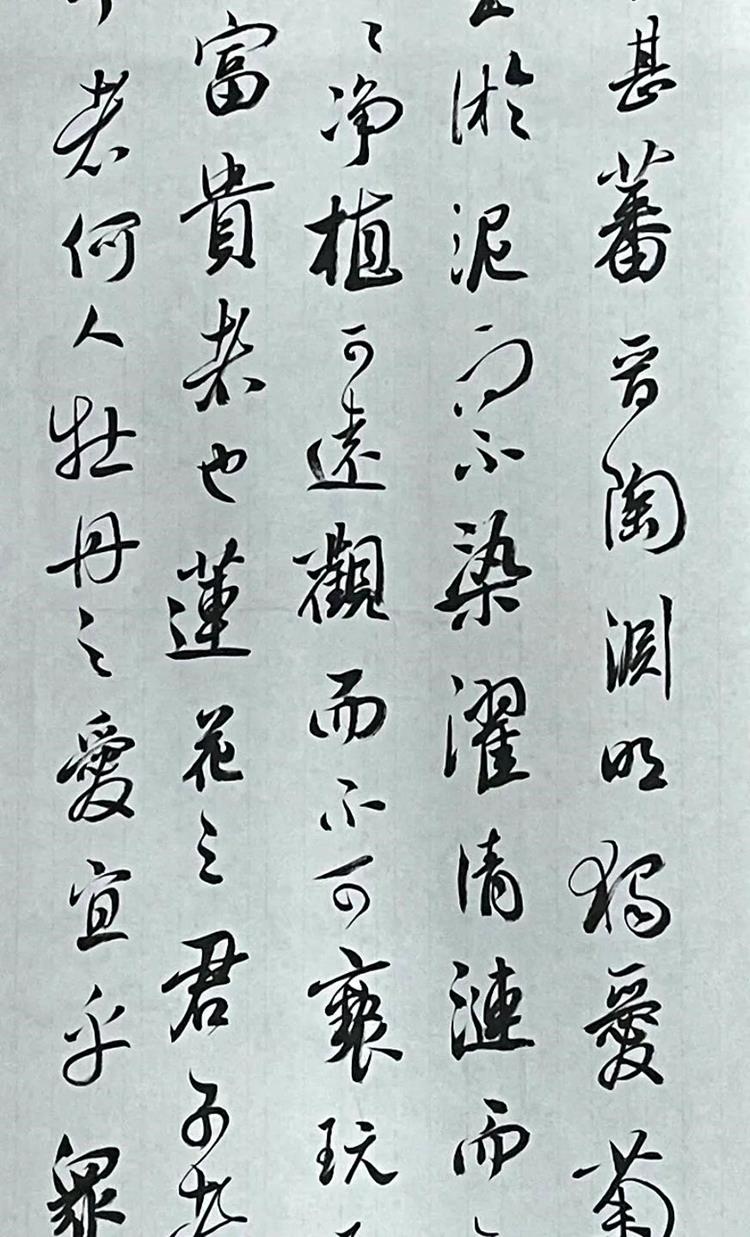 甚蕃晋陶淵明獨愛菊
淤泥而不染濯清漣而
々净植可遠觀而不可褻玩
富貴者也蓮花之君子者
者何人牡丹之愛宜乎眾